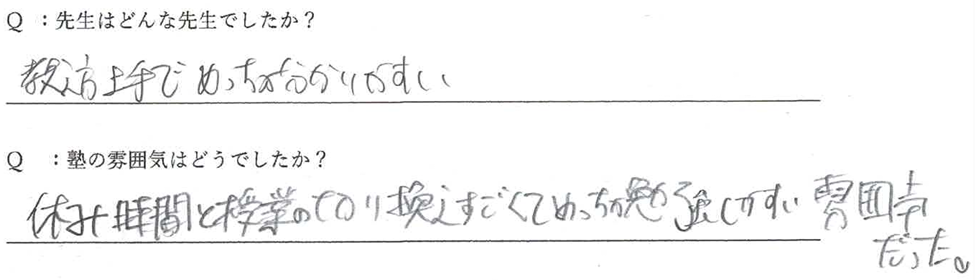 Q ：先生はどんな先生でしたか？
教え方上手でめっちゃ分かりやすい
Q ：塾の雰囲気はどうでしたか？
休み時間と授業の切り換えすごくてめっちゃ勉強しやすい雰囲気
だった。